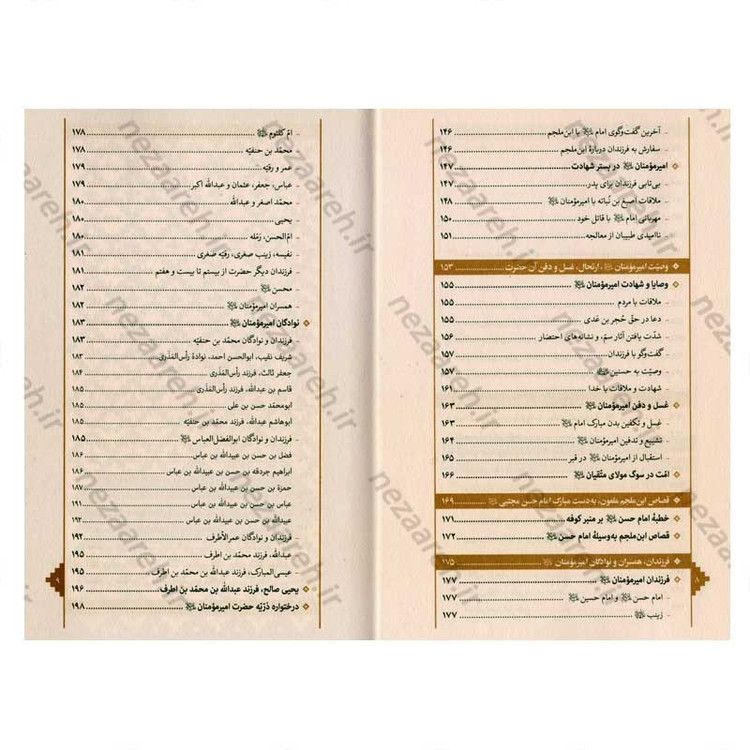 - آخرین گفت‌وگوی امام ﷷ با ابن‌ملجم ... ۱۴۶
- سفارش به فرزندان دربارهٔ ابن‌ملجم ... ۱۴۶
امیرمؤمنان ﷷ در بستر شهادت ... ۱۴۷
- بی‌تابی فرزندان برای پدر ... ۱۴۷
- ملاقات اصبغ بن نُباته با امیرمؤمنان ﷷ ... ۱۴۸
- مهربانی امام ﷷ با قاتل خود ... ۱۵۰
- ناامیدی طبیبان از معالجه ... ۱۵۱
وصیّت امیرمؤمنان ﷷ، ارتحال، غسل و دفن آن حضرت ... ۱۵۳
وصایا و شهادت امیرمؤمنان ﷷ ... ۱۵۵
- ملاقات با مردم ... ۱۵۵
- دعا در حقّ حُجر بن عَدی ... ۱۵۵
- شدّت یافتن آثار سمّ، و نشانه‌های احتضار ... ۱۵۶
- گفت‌وگو با فرزندان ... ۱۵۷
- وصیّت به حسنین ﷷ ... ۱۵۷
- شهادت و ملاقات با خدا ... ۱۶۱
غسل و دفن امیرمؤمنان ﷷ ... ۱۶۳
- غسل و تکفین بدن مبارک امام ﷷ ... ۱۶۳
- تشییع و تدفین امیرمؤمنان ﷷ ... ۱۶۴
- استقبال از امیرمؤمنان ﷷ در قبر ... ۱۶۵
امّت در سوگ مولای متّقیان ﷷ ... ۱۶۶
قصاص ابن‌ملجم ملعون، به‌دست مبارک امام حسن مجتبی ﷷ ... ۱۶۹
خطبهٔ امام حسن ﷷ بر منبر کوفه ... ۱۷۱
قصاص ابن‌ملجم به‌وسیلهٔ امام حسن ﷷ ... ۱۷۲
فرزندان، همسران و نوادگان امیرمؤمنان ﷷ ... ۱۷۵
فرزندان امیرمؤمنان ﷷ ... ۱۷۷
- امام حسن ﷷ و امام حسین ﷷ ... ۱۷۷
- زینب ﷷ ... ۱۷۷
۸
- امّ کلثوم ﷷ ... ۱۷۸
- محمّد بن حنفیّه ... ۱۷۸
- عمر و رقیّه ... ۱۷۹
- عباس، جعفر، عثمان و عبدالله اکبر ... ۱۷۹
- محمّد اصغر و عبدالله ... ۱۸۰
- یحیی ... ۱۸۰
- امّ‌الحسن، رَمْله ... ۱۸۰
- نفیسه، زینب صغری، رقیّه صغری ... ۱۸۱
- فرزندان دیگر حضرت از بیستم تا بیست و هفتم ... ۱۸۱
- محسن ﷷ ... ۱۸۲
- همسران امیرمؤمنان ﷷ ... ۱۸۲
نوادگان امیرمؤمنان ﷷ ... ۱۸۳
- فرزندان و نوادگان محمّد بن حنفیّه ... ۱۸۳
شریف نقیب، ابوالحسن احمد، نوادهٔ رأس‌المَذری ... ۱۸۳
جعفر ثالث، فرزند رأس‌المَذری ... ۱۸۴
قاسم بن عبدالله، فرزند رأس‌المَذری ... ۱۸۵
ابومحمّد حسن بن علی ... ۱۸۵
ابوهاشم عبدالله، فرزند محمّد بن حنفیّه ... ۱۸۵
- فرزندان و نوادگان ابوالفضل‌العباس ﷷ ... ۱۸۵
فضل بن حسن بن عبیدالله بن عباس ... ۱۸۶
ابراهیم جردقه بن حسن بن عبیدالله بن عباس ... ۱۸۶
حمزة بن حسن بن عبیدالله بن عباس ... ۱۸۷
عباس بن حسن بن عبیدالله بن عباس ... ۱۹۱
عبیدالله بن حسن بن عبیدالله بن عباس ... ۱۹۲
- فرزندان و نوادگان عمرالأطرف ... ۱۹۲
- عبدالله، فرزند محمّد بن اطرف ... ۱۹۵
- عیسی‌المبارک، فرزند عبدالله بن محمّد بن اطرف ... ۱۹۵
یحیی صالح، فرزند عبدالله بن محمّد بن اطرف ... ۱۹۶
درختواره ذرّیّه حضرت امیرمؤمنان ﷷ ... ۱۹۸
۹
nezaareh.ir